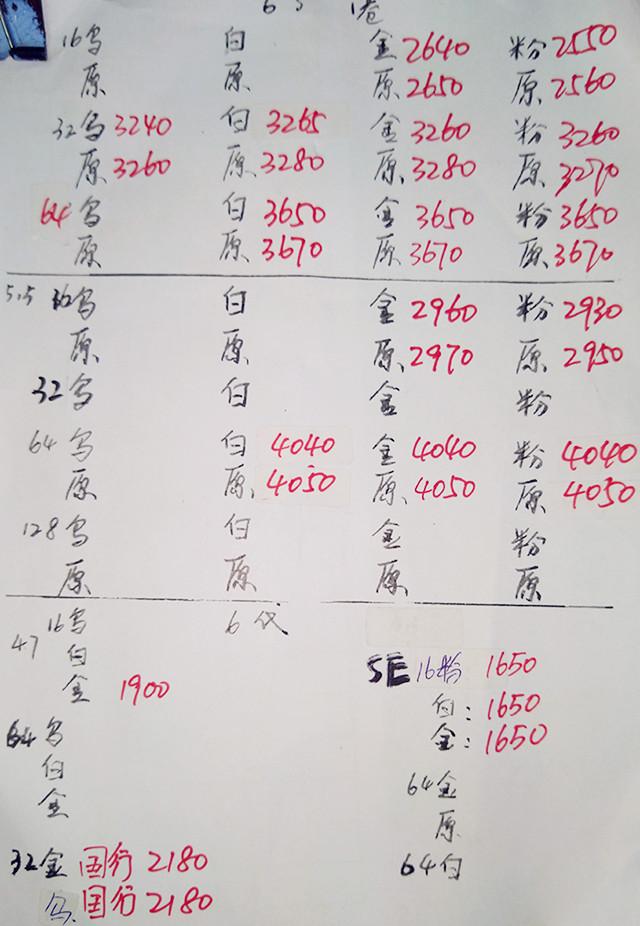 16乌 白 金2640 粉2550
原 原 原2650 原2560
32乌3240 白 3265 金3260 粉3260
原3260 原3280 原3280 原3270
64乌 白 3650 金3650 粉3650
原 原3670 原3670 原3670
5.5 乌 白 金2960 粉2930
原 原 原2970 原2950
32乌 白 金 粉
64乌 白4040 金4040 粉4040
原 原4050 原4050 原4050
128乌 白 金 粉
原 原 原 原
47 16乌 6代
白
金 1900
64乌
白
金
32金 国行 2180
乌 国行 2180
SE 16粉 1650
白: 1650
金: 1650
64金
原
64白